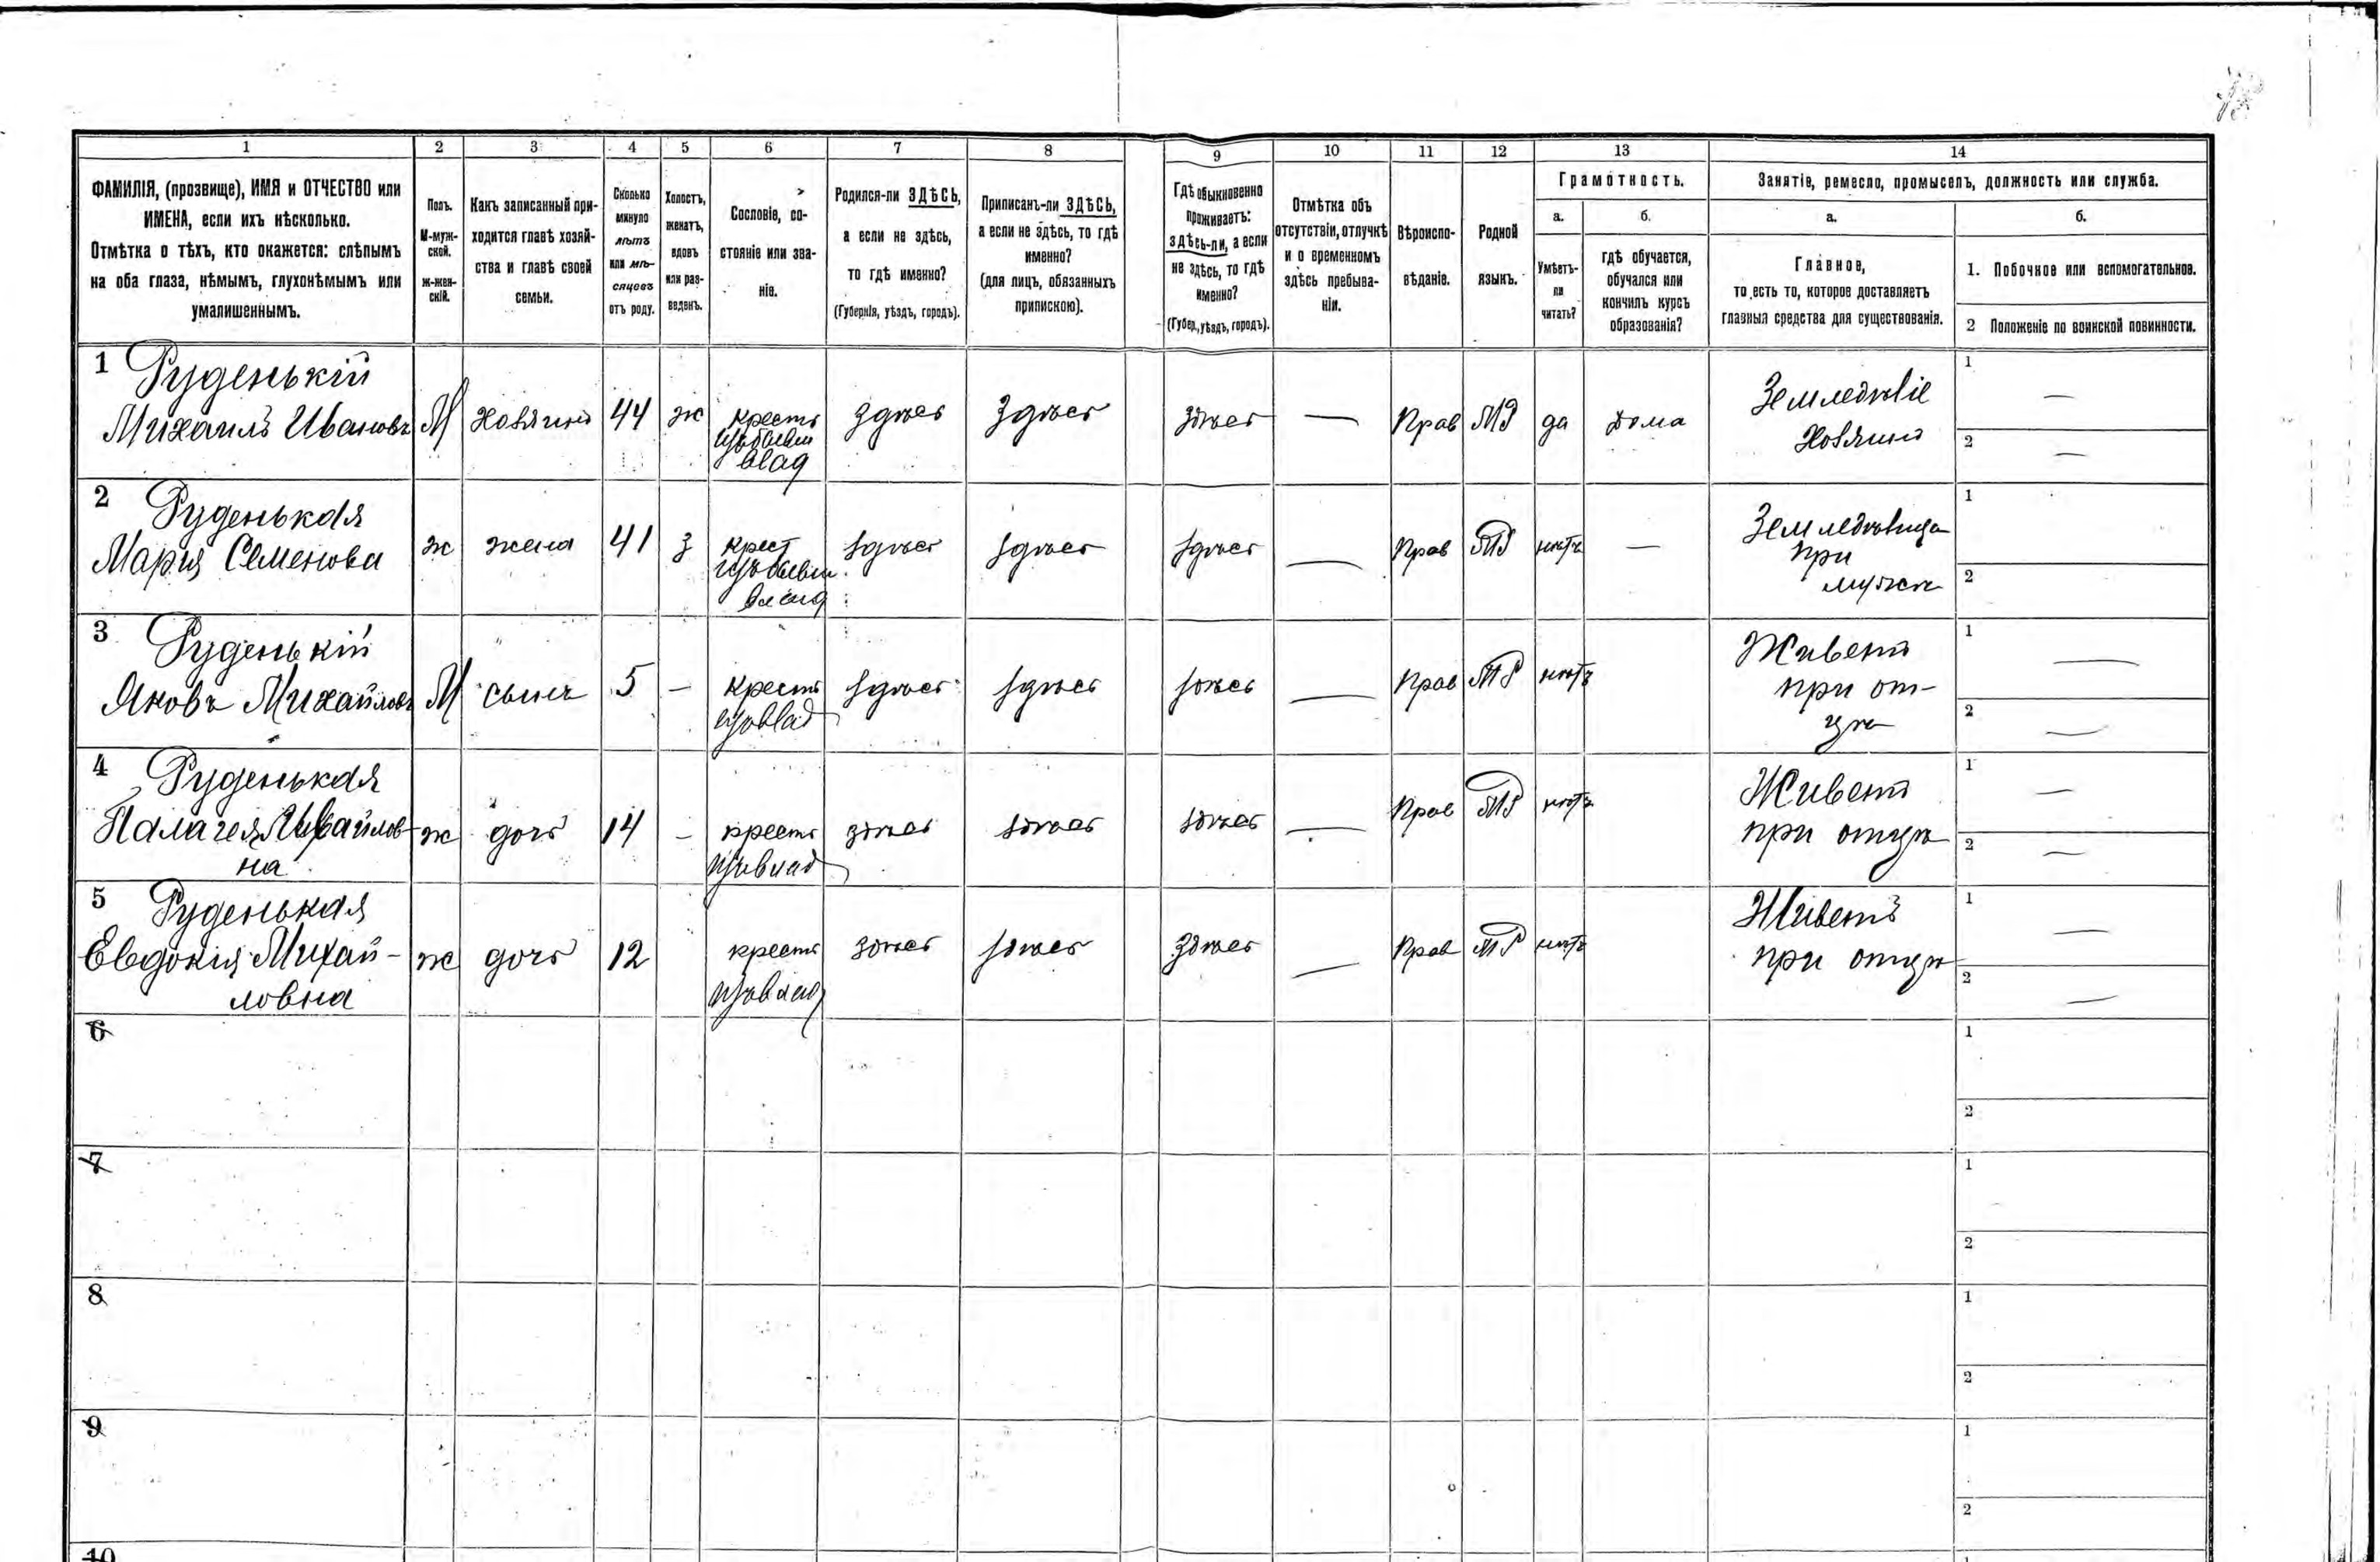 1
2
3
4
5
6
7
8
9
10
11
12
13
14
ФАМИЛІЯ, (прозвище), ИМЯ и ОТЧЕСТВО или
ИМЕНА, если ихъ нѣсколько.
Отмѣтка о тѣхъ, кто окажется: слѣпымъ
на оба глаза, нѣмымъ, глухонѣмымъ или
умалишеннымъ.
Полъ.
М-муж-
ской.
ж-жен-
скій.
Какъ записанный при-
ходится главѣ хозяй-
ства и главѣ своей
семьи.
Сколько
минуло
лѣтъ
или мѣ-
сяцевъ
отъ роду.
Холостъ,
женатъ,
вдовъ
или раз-
веденъ.
Сословіе, со-
стояніе или зва-
ніе.
Родился-ли ЗДѢСЬ,
а если не здѣсь,
то гдѣ именно?
(Губернія, уѣздъ, городъ).
Приписанъ-ли ЗДѢСЬ,
а если не здѣсь, то гдѣ
именно?
(для лицъ, обязанныхъ
припискою).
Гдѣ обыкновенно
проживаетъ:
здѣсь-ли, а если
не здѣсь, то гдѣ
именно?
(Губер., уѣздъ, городъ).
Отмѣтка объ
отсутствіи, отлучкѣ
и о временномъ
здѣсь пребыва-
ніи.
Вѣроиспо-
вѣданіе.
Родной
языкъ.
Грамотность.
а.
б.
Умѣетъ-
ли
читать?
гдѣ обучается,
обучался или
кончилъ курсъ
образованія?
Занятіе, ремесло, промыселъ, должность или служба.
а.
б.
Главное,
то есть то, которое доставляетъ
главныя средства для существованія.
1. Побочное или вспомогательное.
2 Положеніе по воинской повинности.
1 Руденькій
Михаилъ Ивановъ М хозяинъ 44 ж крестъ здѣсь здѣсь здѣсь — Прав МР да дома
влад
Земледѣліе
Хозяинъ
1 —
2 —
2 Руденькая
Мария Семенова ж жена 41 з крест здѣсь здѣсь здѣсь — Прав МР нѣтъ —
влад
при
мужѣ
1
2
3 Руденькій
Яковъ Михайловъ М сынъ 5 — крестъ здѣсь здѣсь здѣсь — Прав МР нѣтъ
Живетъ
при от-
цѣ
1 —
2 —
4 Руденькая
Палагея Михайлов-
на
ж дочь 14 — крестъ здѣсь здѣсь здѣсь — Прав МР нѣтъ
Живетъ
при отцѣ
1 —
2 —
5 Руденькая
Евдокія Михай-
ловна
ж дочь 12 крестъ здѣсь здѣсь здѣсь — Прав МР нѣтъ
Живетъ
при отцѣ
1 —
2 —
6
1
2
7
1
2
8
1
2
9
1
2
10
1